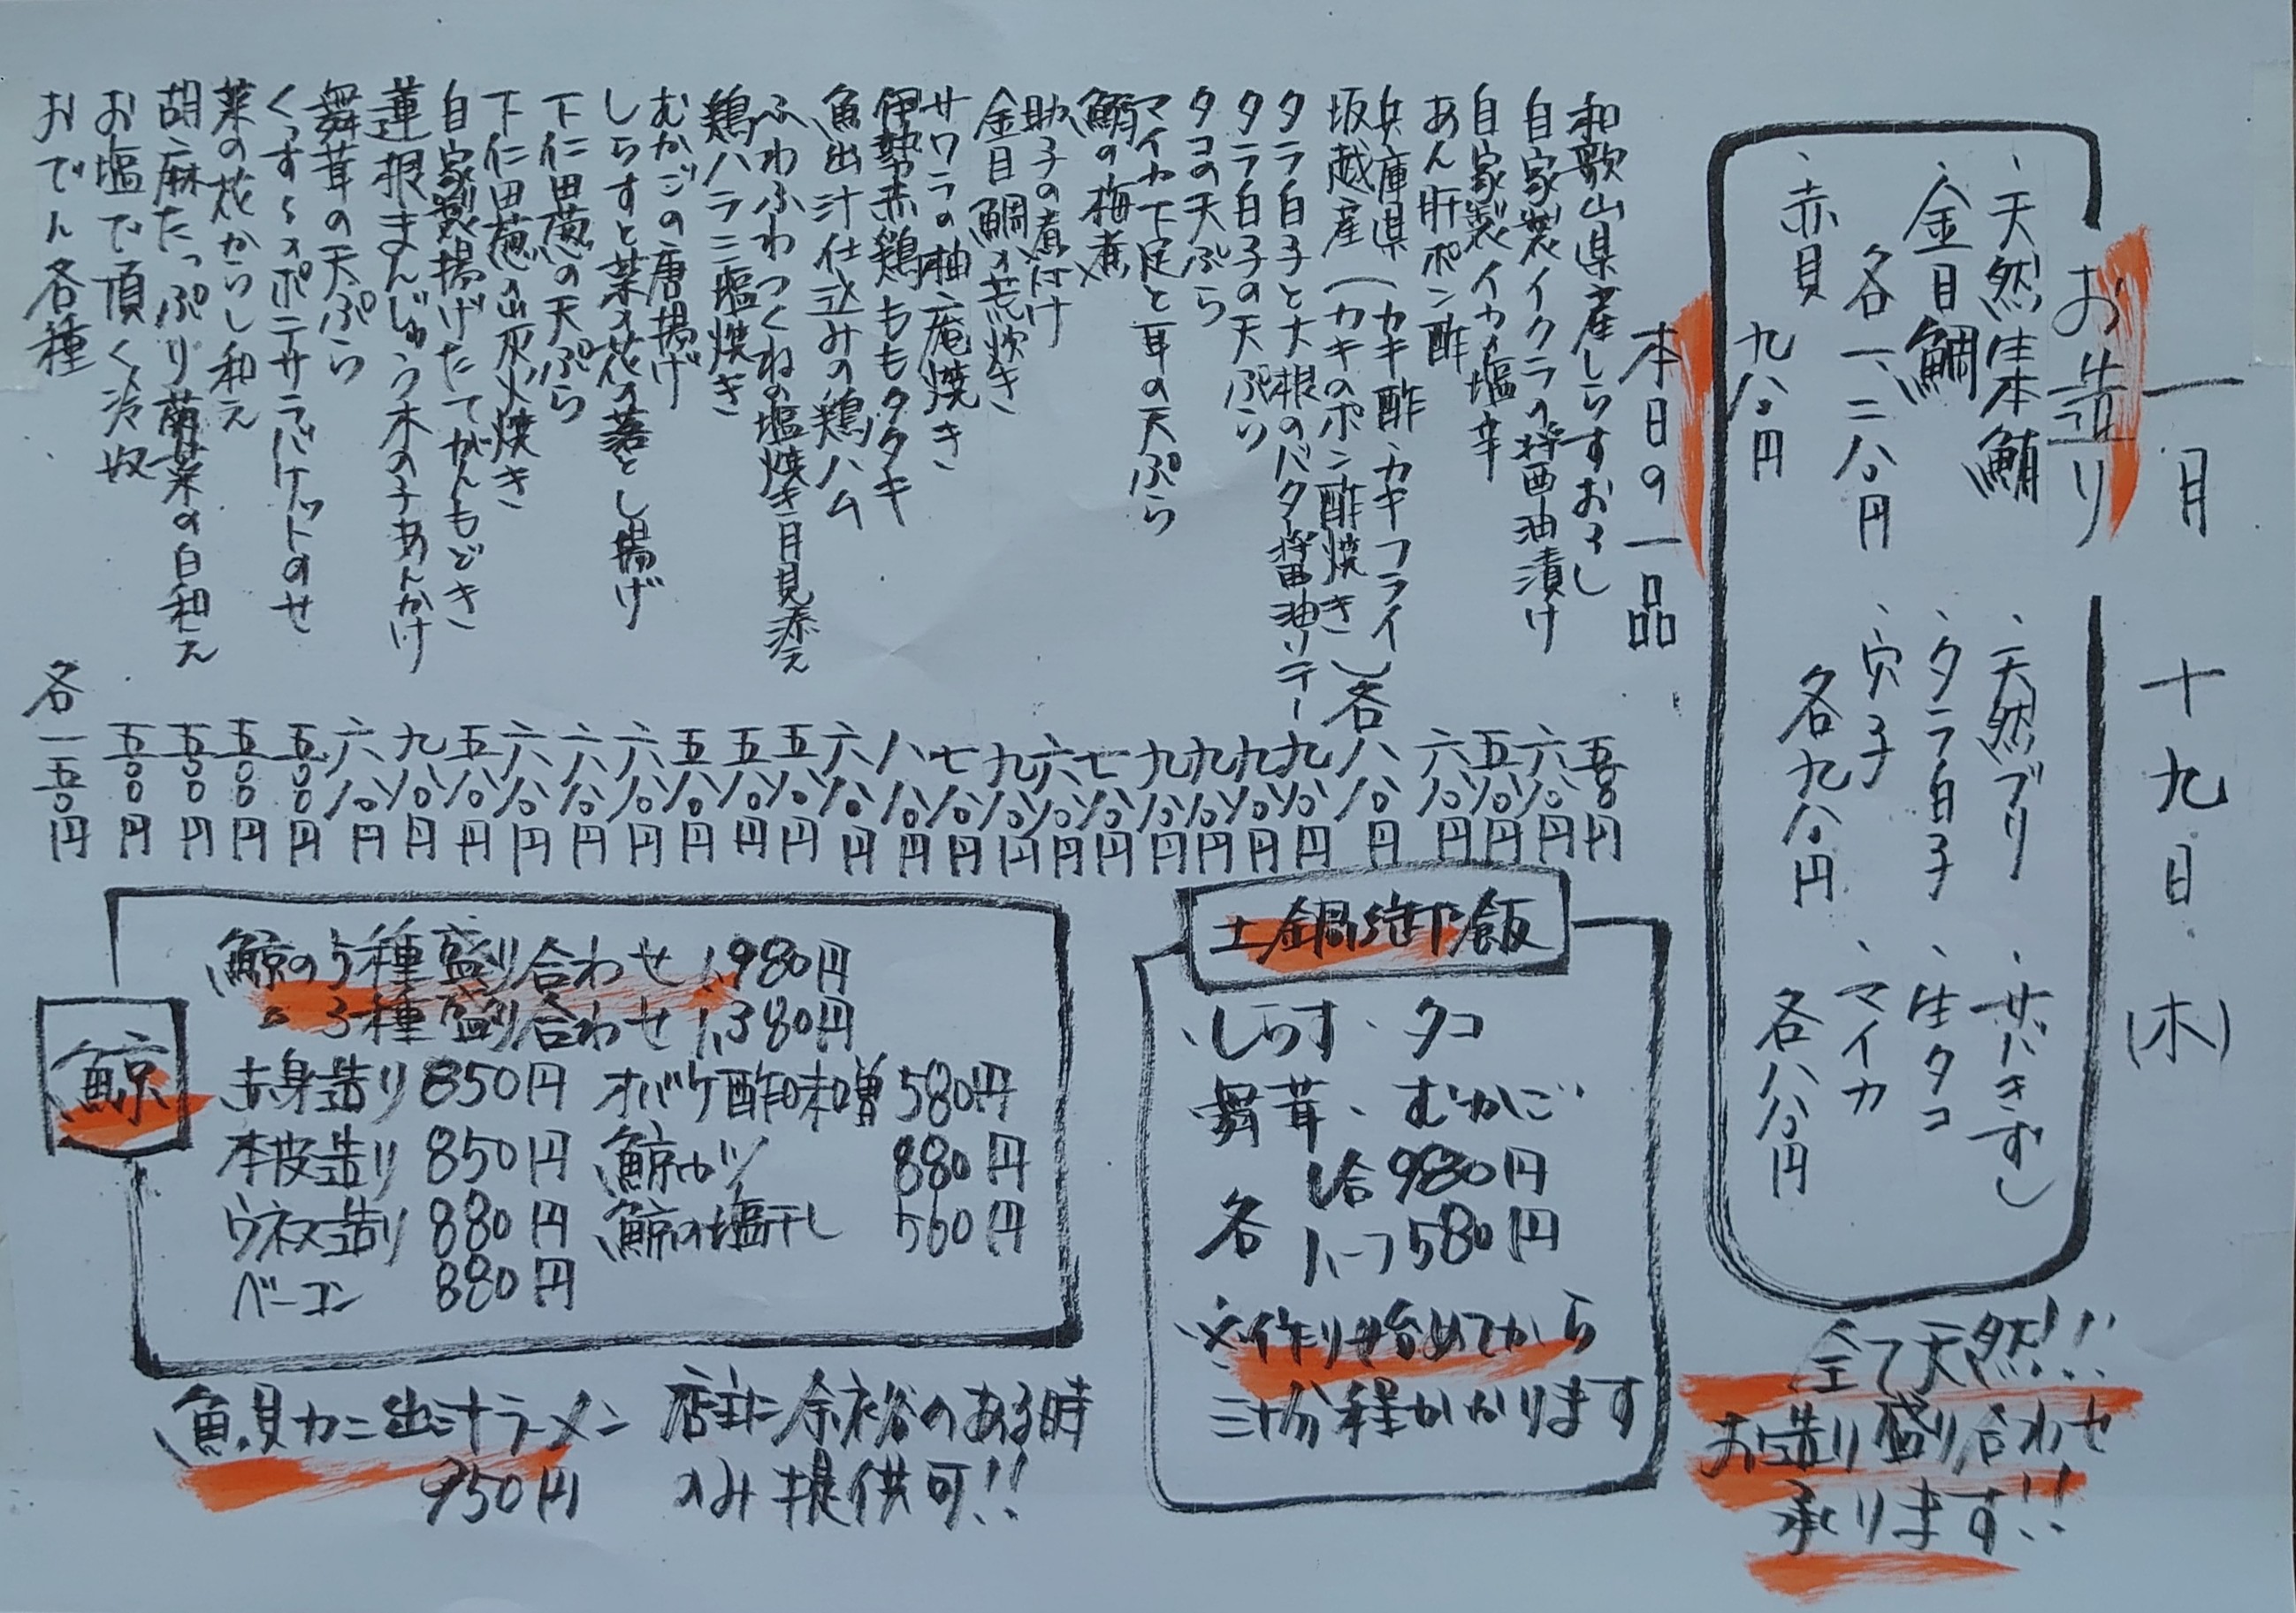 一月十九日(木)
お造り
、天然生本鮪
、金目鯛
各一、二八〇円
、赤貝
九八〇円
、天然ブリ
、タラ白子
、穴子
各九八〇円
、サバきずし
、生タコ
、マイカ
各八八〇円
全て天然!!
お造り盛り合わせ
承ります!!
本日の一品
和歌山県産しらすおろし 五八〇円
自家製イクラの醤油漬け 六八〇円
自家製イカの塩辛 五八〇円
あん肝ポン酢 六八〇円
兵庫県坂越産(カキ酢、カキフライ カキのポン酢焼き)各八八〇円
タラ白子と大根のバター醤油ソテー 九八〇円
タラ白子の天ぷら 九八〇円
タコの天ぷら 九八〇円
マイカ下足と耳の天ぷら 九八〇円
鮪の梅煮 七八〇円
助子の煮付け 六八〇円
金目鯛の荒炊き 九八〇円
サワラの柚庵焼き 七八〇円
伊勢赤鶏ももタタキ 八八〇円
魚出汁仕込みの鶏ハム 六八〇円
ふわふわつくねの塩焼き月見添え 五八〇円
鶏ハラミ塩焼き 五八〇円
むかごの唐揚げ 五八〇円
しらすと菜の花の落とし揚げ 六八〇円
下仁田葱の天ぷら 六八〇円
下仁田葱の山灰火焼き 六八〇円
自家製揚げたてがんもどき 五八〇円
蓮根まんじゅう木の子あんかけ 九八〇円
舞茸の天ぷら 六八〇円
くずしポテサラバケットのせ 五八〇円
菜の花からし和え 五〇〇円
胡麻たっぷり菊菜の白和え 五〇〇円
お塩で頂く冷奴 五〇〇円
おでん各種 各一五〇円
土鍋御飯
、しらす、タコ
舞茸、むかご
各 1合980円
ハーフ580円
※作り始めてから
三十分程かかります
鯨
鯨の5種盛り合わせ 1,980円
〃 3種盛り合わせ 1,380円
赤身造り 850円 オバケ酢味噌 580円
本皮造り 850円 鯨カツ 880円
ウネス造り 880円 鯨の塩干し 560円
ベーコン 880円
魚貝カニ出汁ラーメン 店主に余裕のある時
950円 のみ提供可!!